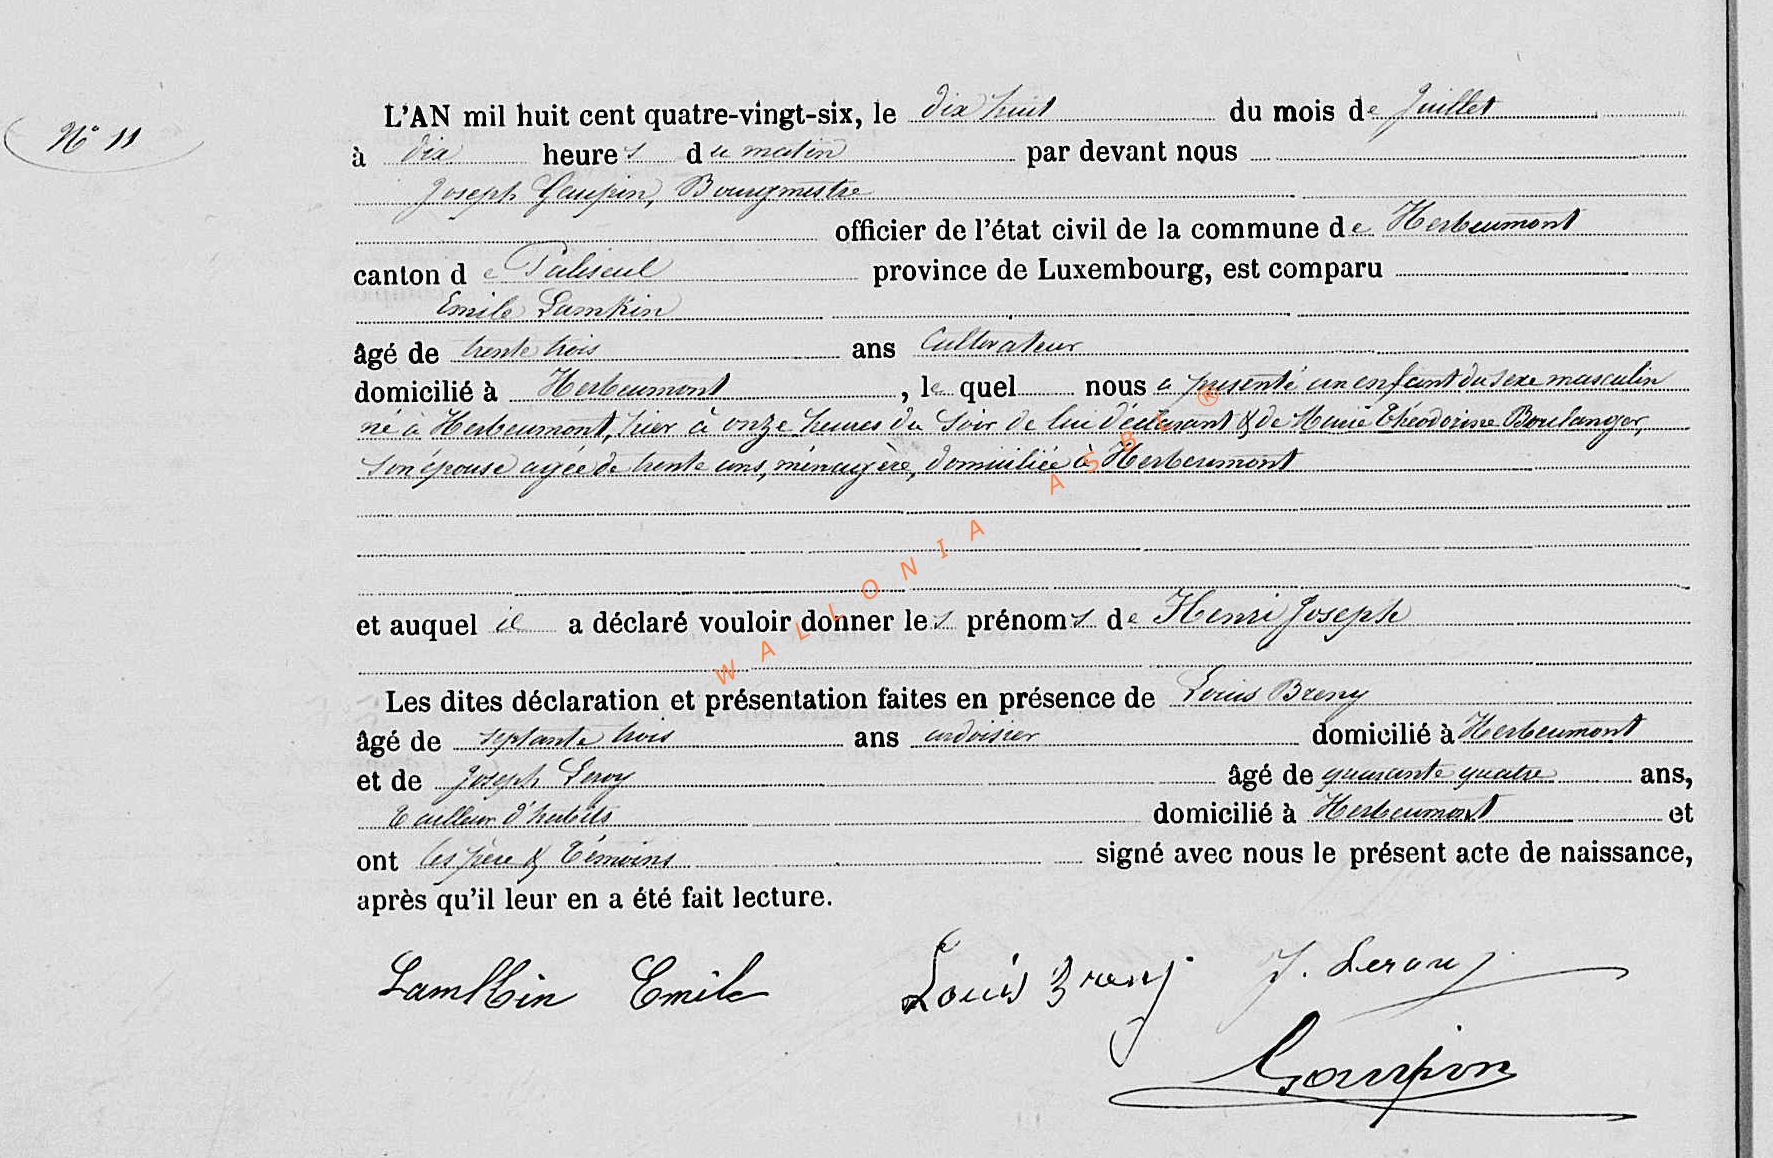 N° 11
L'AN mil huit cent quatre-vingt-six, le dix huit du mois de Juillet
à dix heures du matin par devant nous
Joseph Gaupin, Bourgmestre
officier de l'état civil de la commune de Herbeumont
canton de Paliseul province de Luxembourg, est comparu
Emile Lamkin
âgé de trente trois ans Cultivateur
domicilié à Herbeumont, lequel nous a présenté un enfant du sexe masculin
né à Herbeumont, hier à onze heures du soir de lui déclarant & de Marie Théodorine Boulanger,
son épouse agée de trente ans, ménagère, domiciliée à Herbeumont
et auquel il a déclaré vouloir donner les prénoms de Henri Joseph
Les dites déclaration et présentation faites en présence de Louis Breny
âgé de septante trois ans ardoisier domicilié à Herbeumont
et de Joseph Leroy âgé de quarante quatre ans,
tailleur d'habits domicilié à Herbeumont et
ont les père & témoins signé avec nous le présent acte de naissance,
après qu'il leur en a été fait lecture.
Lamkin Emile Louis Breny J. Leroy
Gaupin
WALLONIA ASBL ®